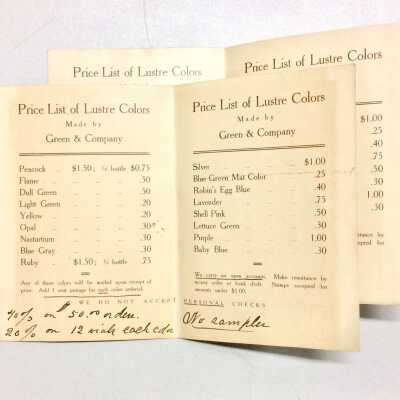 Price List of Lustre Colors
Price List of Lustre Colors
Made by
Green & Company
Peacock .. $1.50; ½ bottle $0.75
Flame .. .30
Dull Green .50
Light Green .20
Yellow .. .20
Opal .. .30
Nasturtium .30
Blue Gray .30
Ruby .. $1.50; ½ .25
Any of these colors will be mailed upon receipt of
price. Add 1 cent postage for each color ordered.
WE DO NOT ACCEPT
40% on $50.00 orders.
20% on 12 vials each color
Price List of Lustre Colors
Made by
Green & Company
Silver .. $1.00
Blue-Green Mat Color .25
Robin's Egg Blue .40
Lavender .75
Shell Pink .50
Lettuce Green .30
Purple 1.00
Baby Blue .30
We carry no open accounts. Make remittance by
money order or bank draft. Stamps accepted for
amounts under $1.00.
PERSONAL CHECKS
No samples
$1.00
.25
.40
.75
.50
.30
1.00
.30
remittance by
accepted for